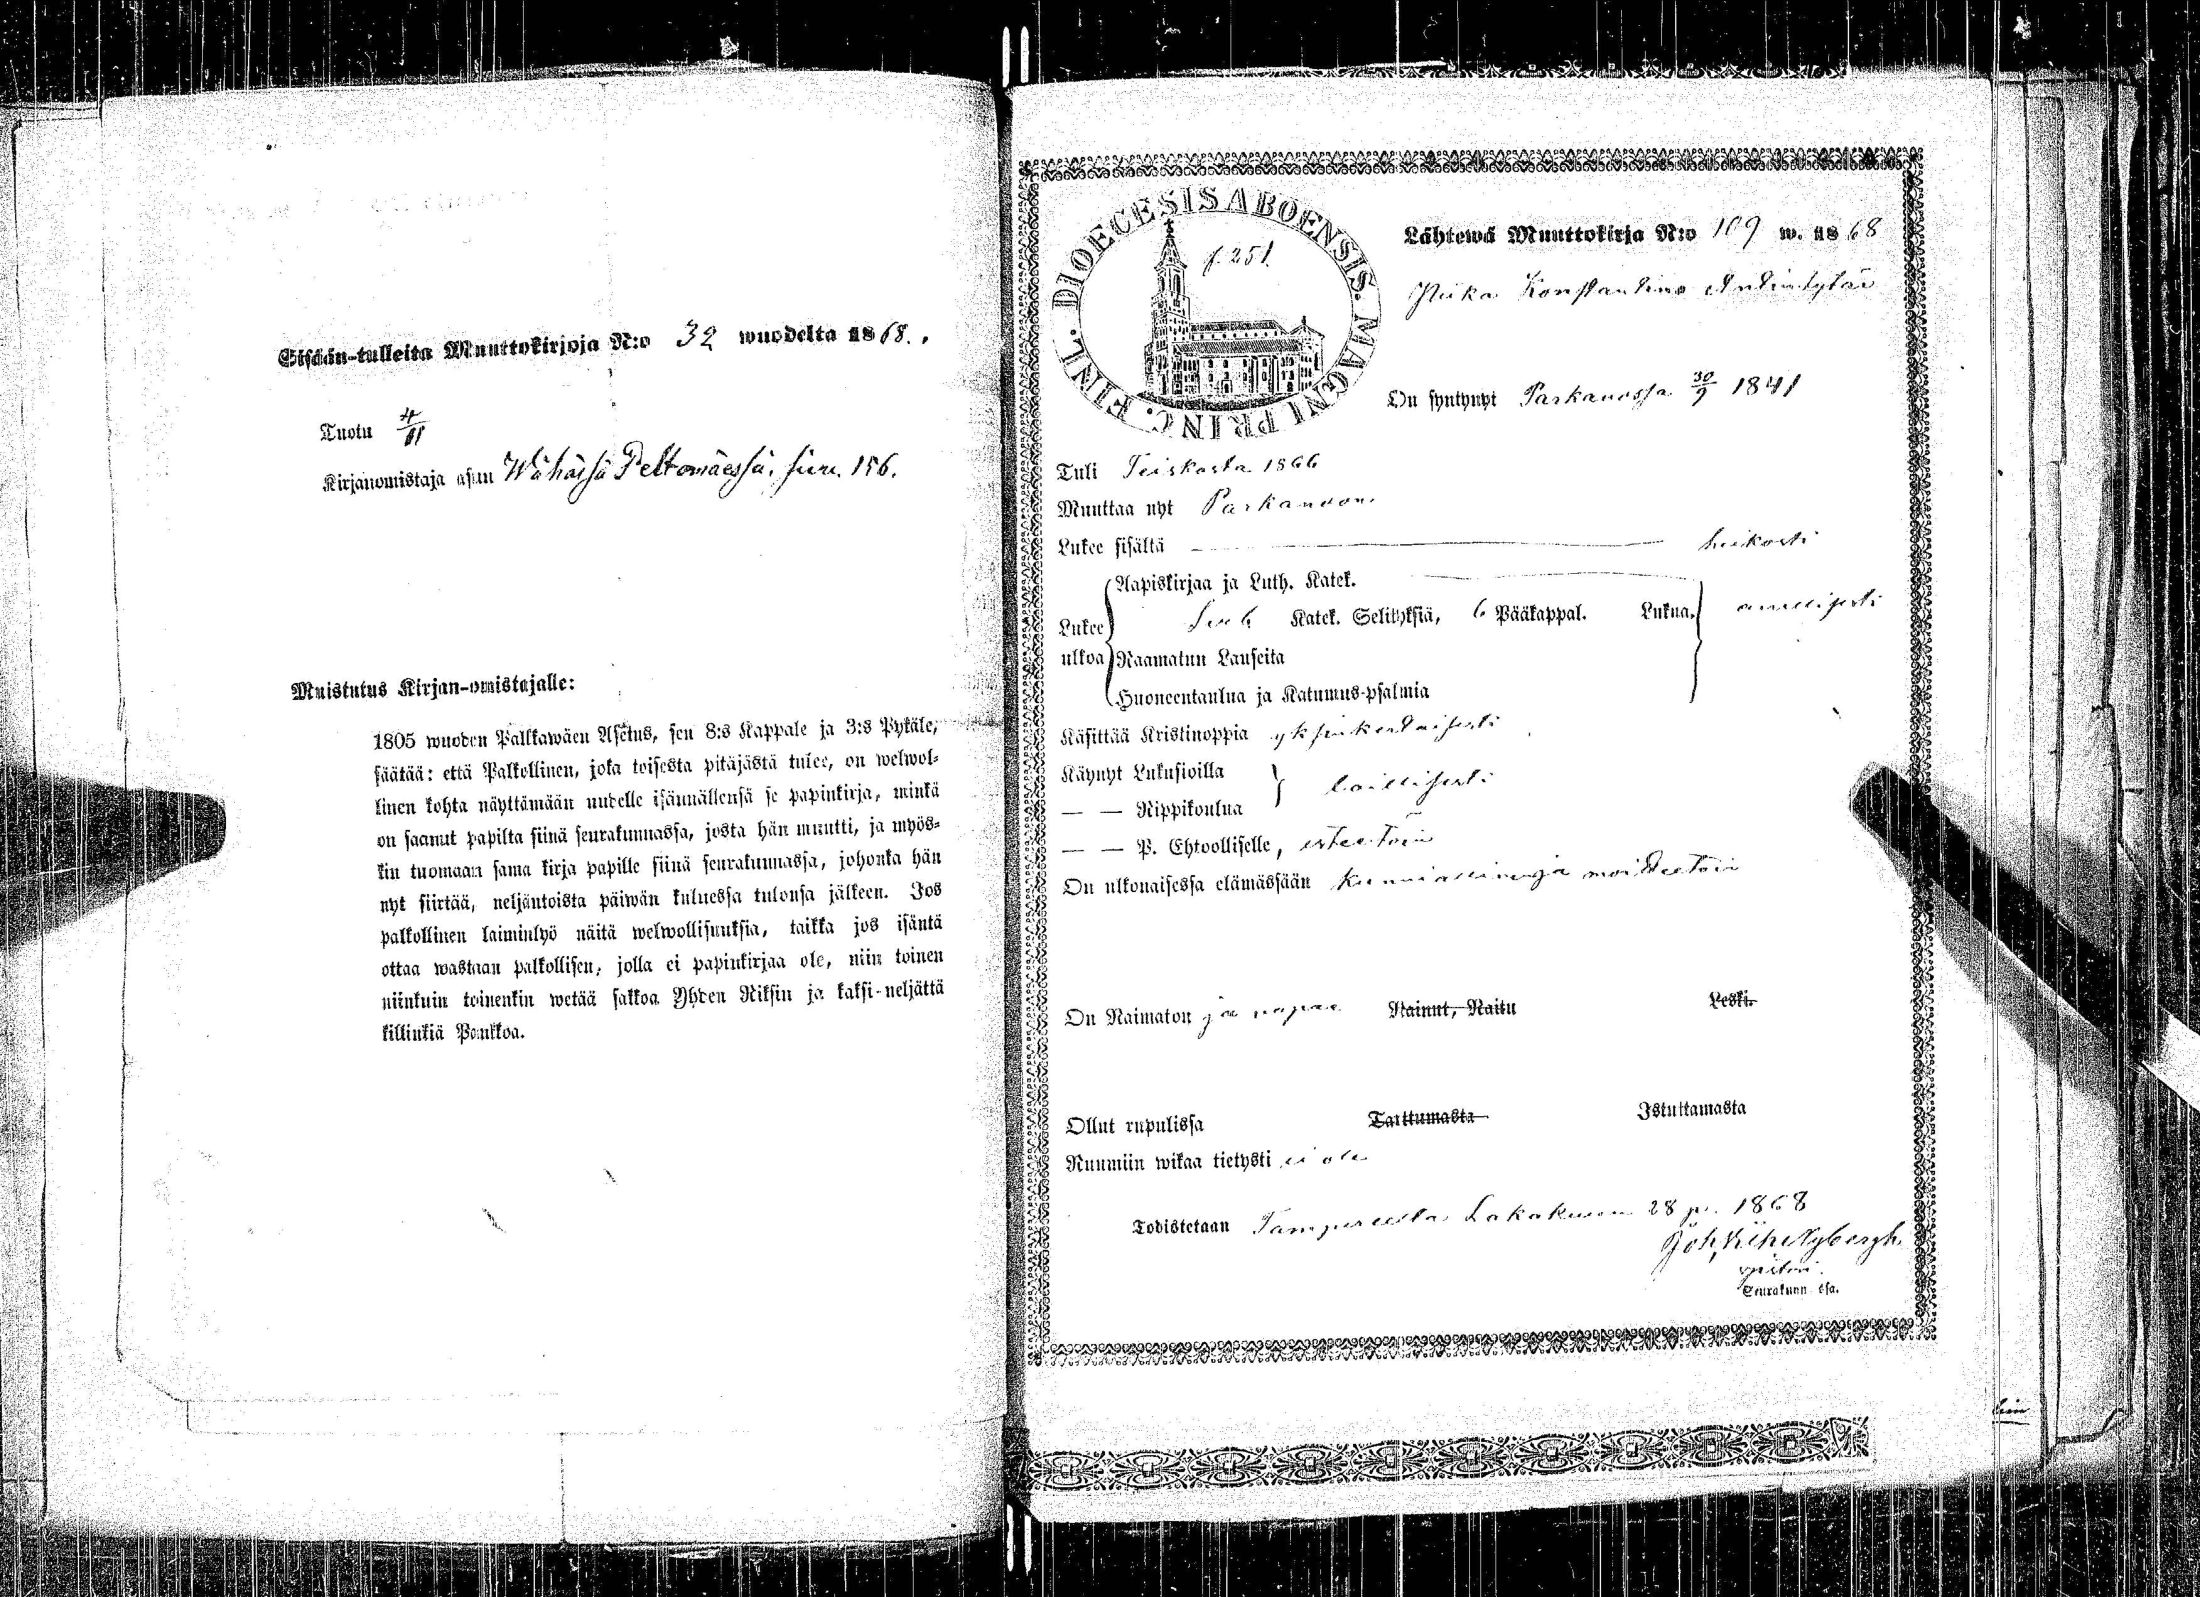 Sisään-tulleita Muuttokirjoja N:o 32 wuodelta 1868.
Tuotu 4/11
Kirjanomistaja asuu Wähässä Peltomäessä. siv. 156.
Muistutus Kirjan-omistajalle:
1805 wuoden Palkkawäen Asetus, sen 8:s Kappale ja 3:s Pykäle,
säätää: että Palkollinen, joka toisesta pitäjästä tulee, on welwol-
linen kohta näyttämään uudelle isännällensä se papinkirja, minkä
on saanut papilta siinä seurakunnassa, josta hän muutti, ja myös-
kin tuomaan sama kirja papille siinä seurakunnassa, johonka hän
nyt siirtää, neljäntoista päiwän kuluessa tulonsa jälkeen. Jos
palkollinen laiminlyö näitä welwollisuuksia, taikka jos isäntä
ottaa wastaan palkollisen, jolla ei papinkirjaa ole, niin toinen
niinkuin toinenkin wetää sakkoa Yhden Riksin ja kaksi-neljättä
killinkiä Pankkoa.
DIOECESIS ABOENSIS. MAGNI PRINC. FINL.
f. 251.
Lähtewä Muuttokirja N:o 109 w. 1868
Piika Konstantina Antintytär
On syntynyt Parkanossa 30/9 1841
Tuli Teiskosta 1866
Muuttaa nyt Parkanoon
Lukee sisältä heikosti
Aapiskirjaa ja Luth. Katek.
Lukee Katek. Selityksiä, 6 Pääkappal. Lukua.
ulkoa Raamatun Lauseita
Huoneentaulua ja Katumus-psalmia
Käsittää Kristinoppia yksinkertaisesti
Käynyt Lukusioilla
— — Rippikoulua laillisesti
— — P. Ehtoolliselle, esteetöin
On ulkonaisessa elämässään kunniallinen ja moitteetoin
On Naimaton ja wapaa Nainut, Naitu Leski.
Ollut rupulissa Tarttumasta Istuttamasta
Ruumiin wikaa tietysti ei ole
Todistetaan Tampereella Lokakuun 28 p. 1868
Nybergh
Seurakunn ssa.